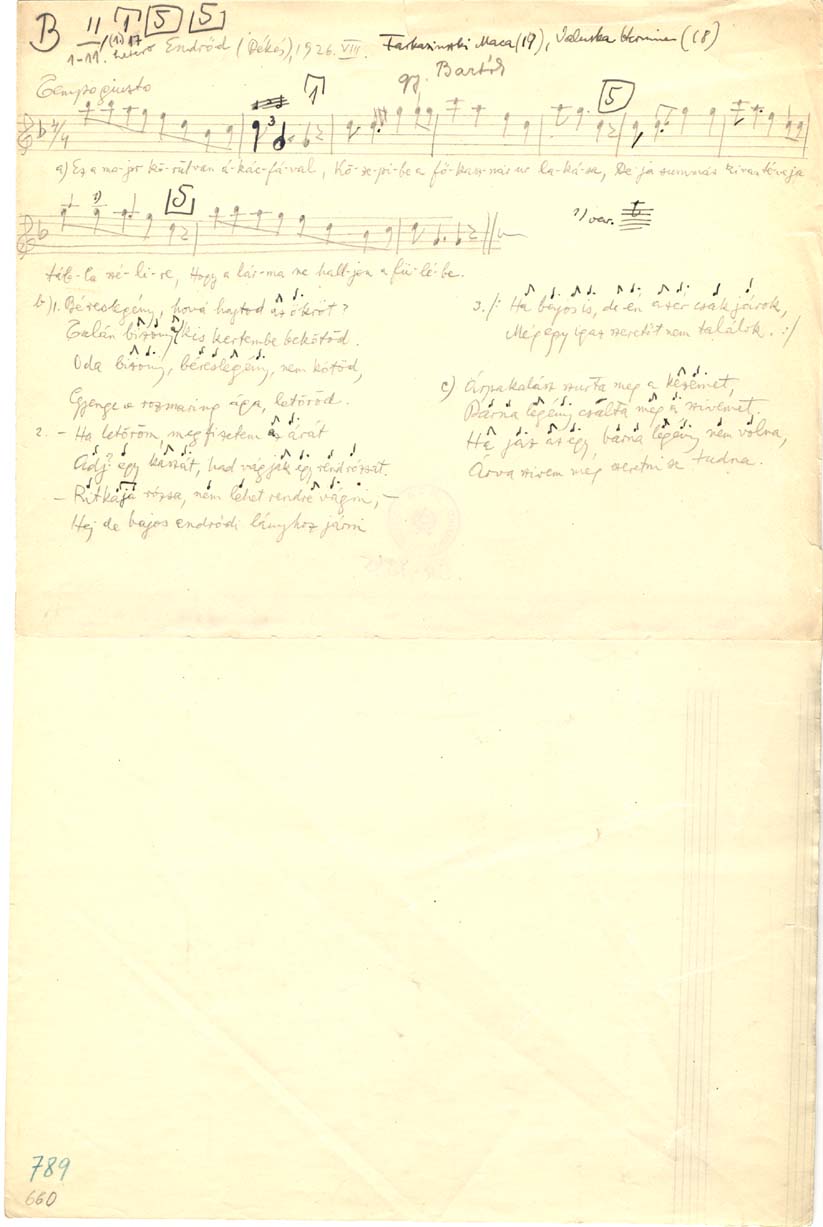 B II 1 5 5
1-11. (1.) 17 hetero Endrőd (Békés), 1926. VIII. Maca (19), (18)
gy. Bartók
Tempo giusto
3 1 5
4/4
a) Ez a ma-jor kö-rül van á-kác-fá-val, Kö-ze-pi-be a fő-kasz-nár úr la-ká-sa, De ja summás
5
1) var.
szé-li-re, Hogy a lár-ma ne hall-jon a fü-lé-be.
b) 1. Béreslegény, hová hajtod az ökröt?
Talán bizony kis kertembe bekötöd.
Oda bizony, béreslegény, nem kötöd,
Gyenge a rozmaring ága, letöröd.
2. – Ha letöröm, megfizetem az árát
Adj? egy kaszát, had vágják egy rend rózsát.
– Ritkája rózsa, nem lehet rendre vágni, –
Hej de bajos endrődi lányhoz járni
3. /: Ha bajos is, de én azér csak járok,
Még egy igaz szeretőt nem találok. :/
c) Árpakalász szurta meg a kezemet,
Barna legény csalta meg a szivemet.
Ha jaz az egy barna legény nem volna,
Árva szivem még szeretni se tudna.
789
660